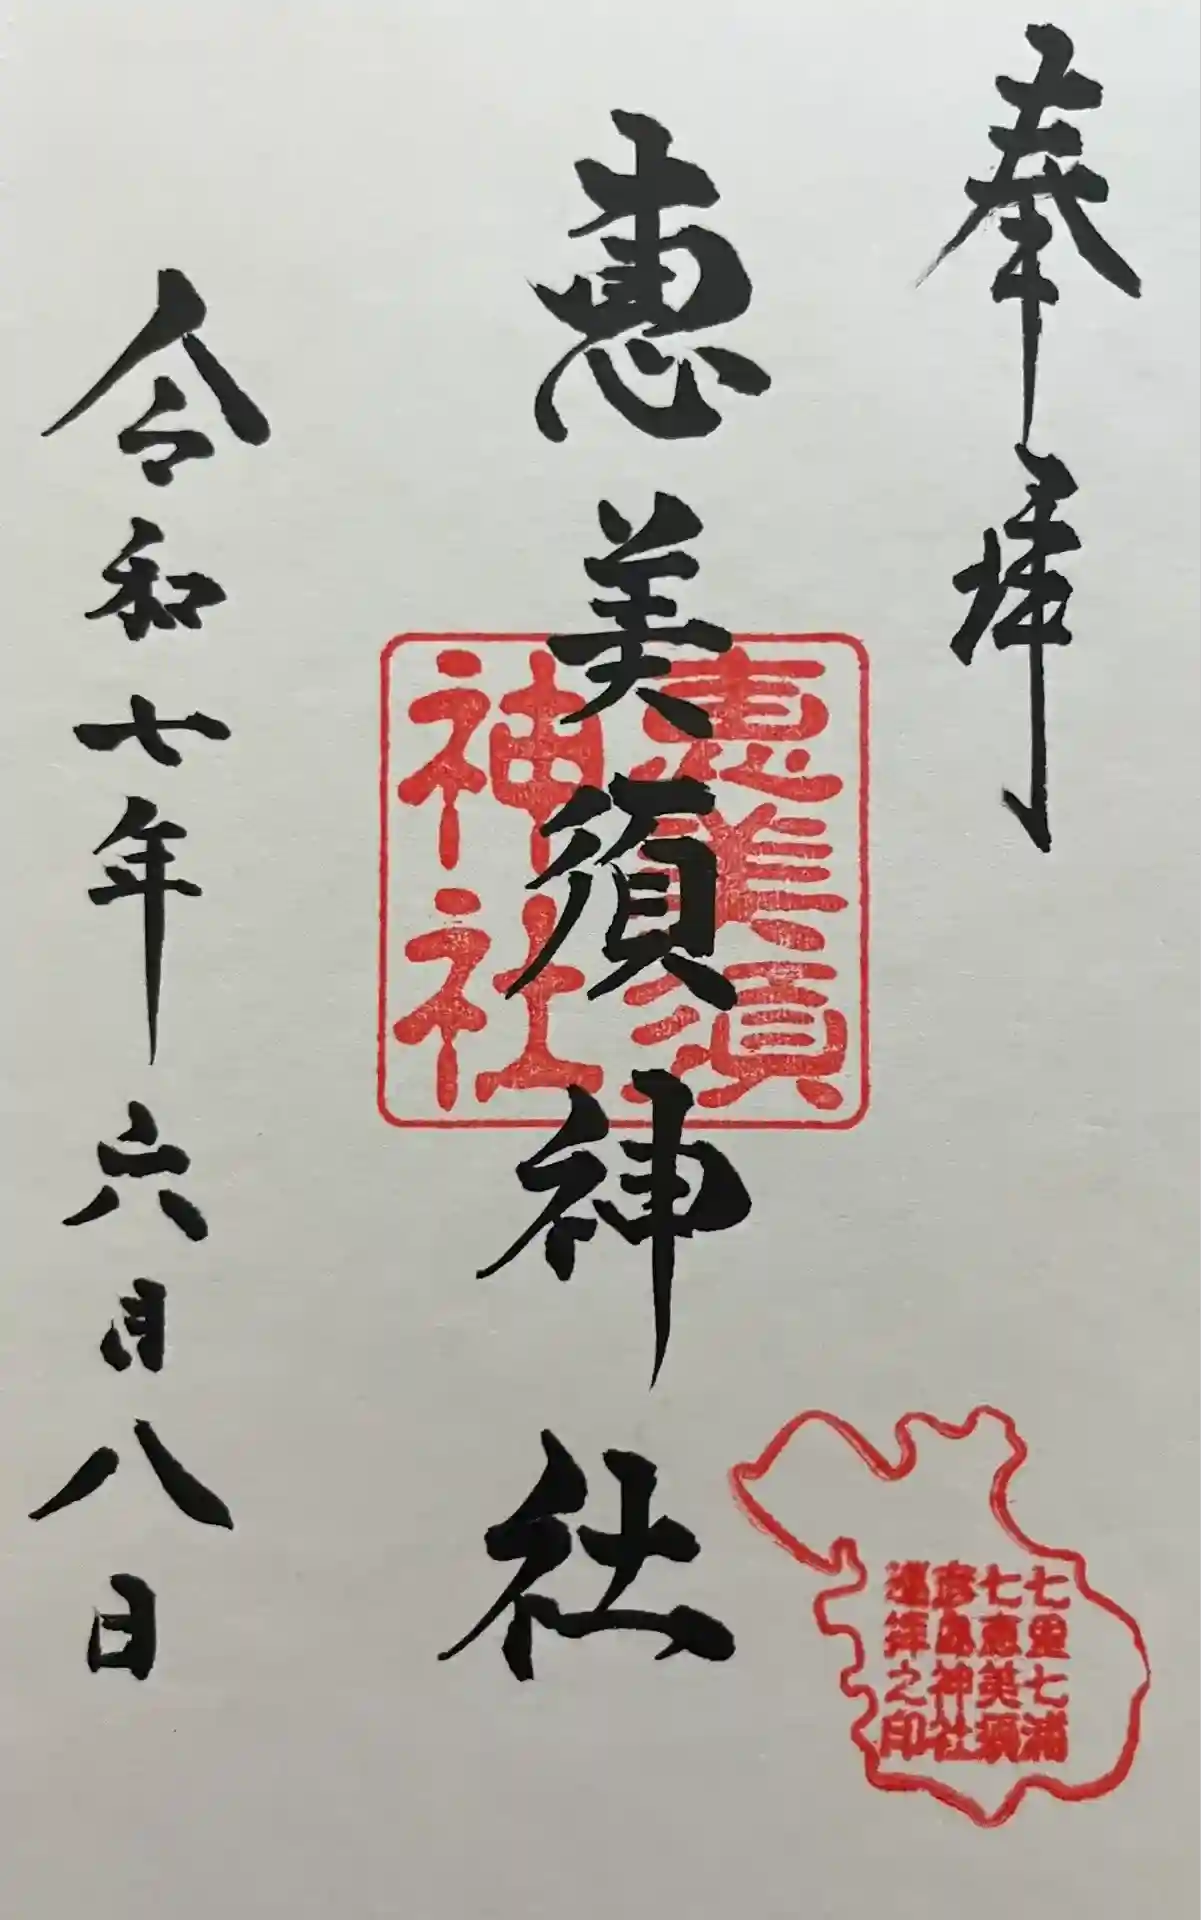 奉拝
恵美須神社
恵美須
神社
令和七年六月八日
七里七浦
七恵美須
彦島神社
遥拝之印